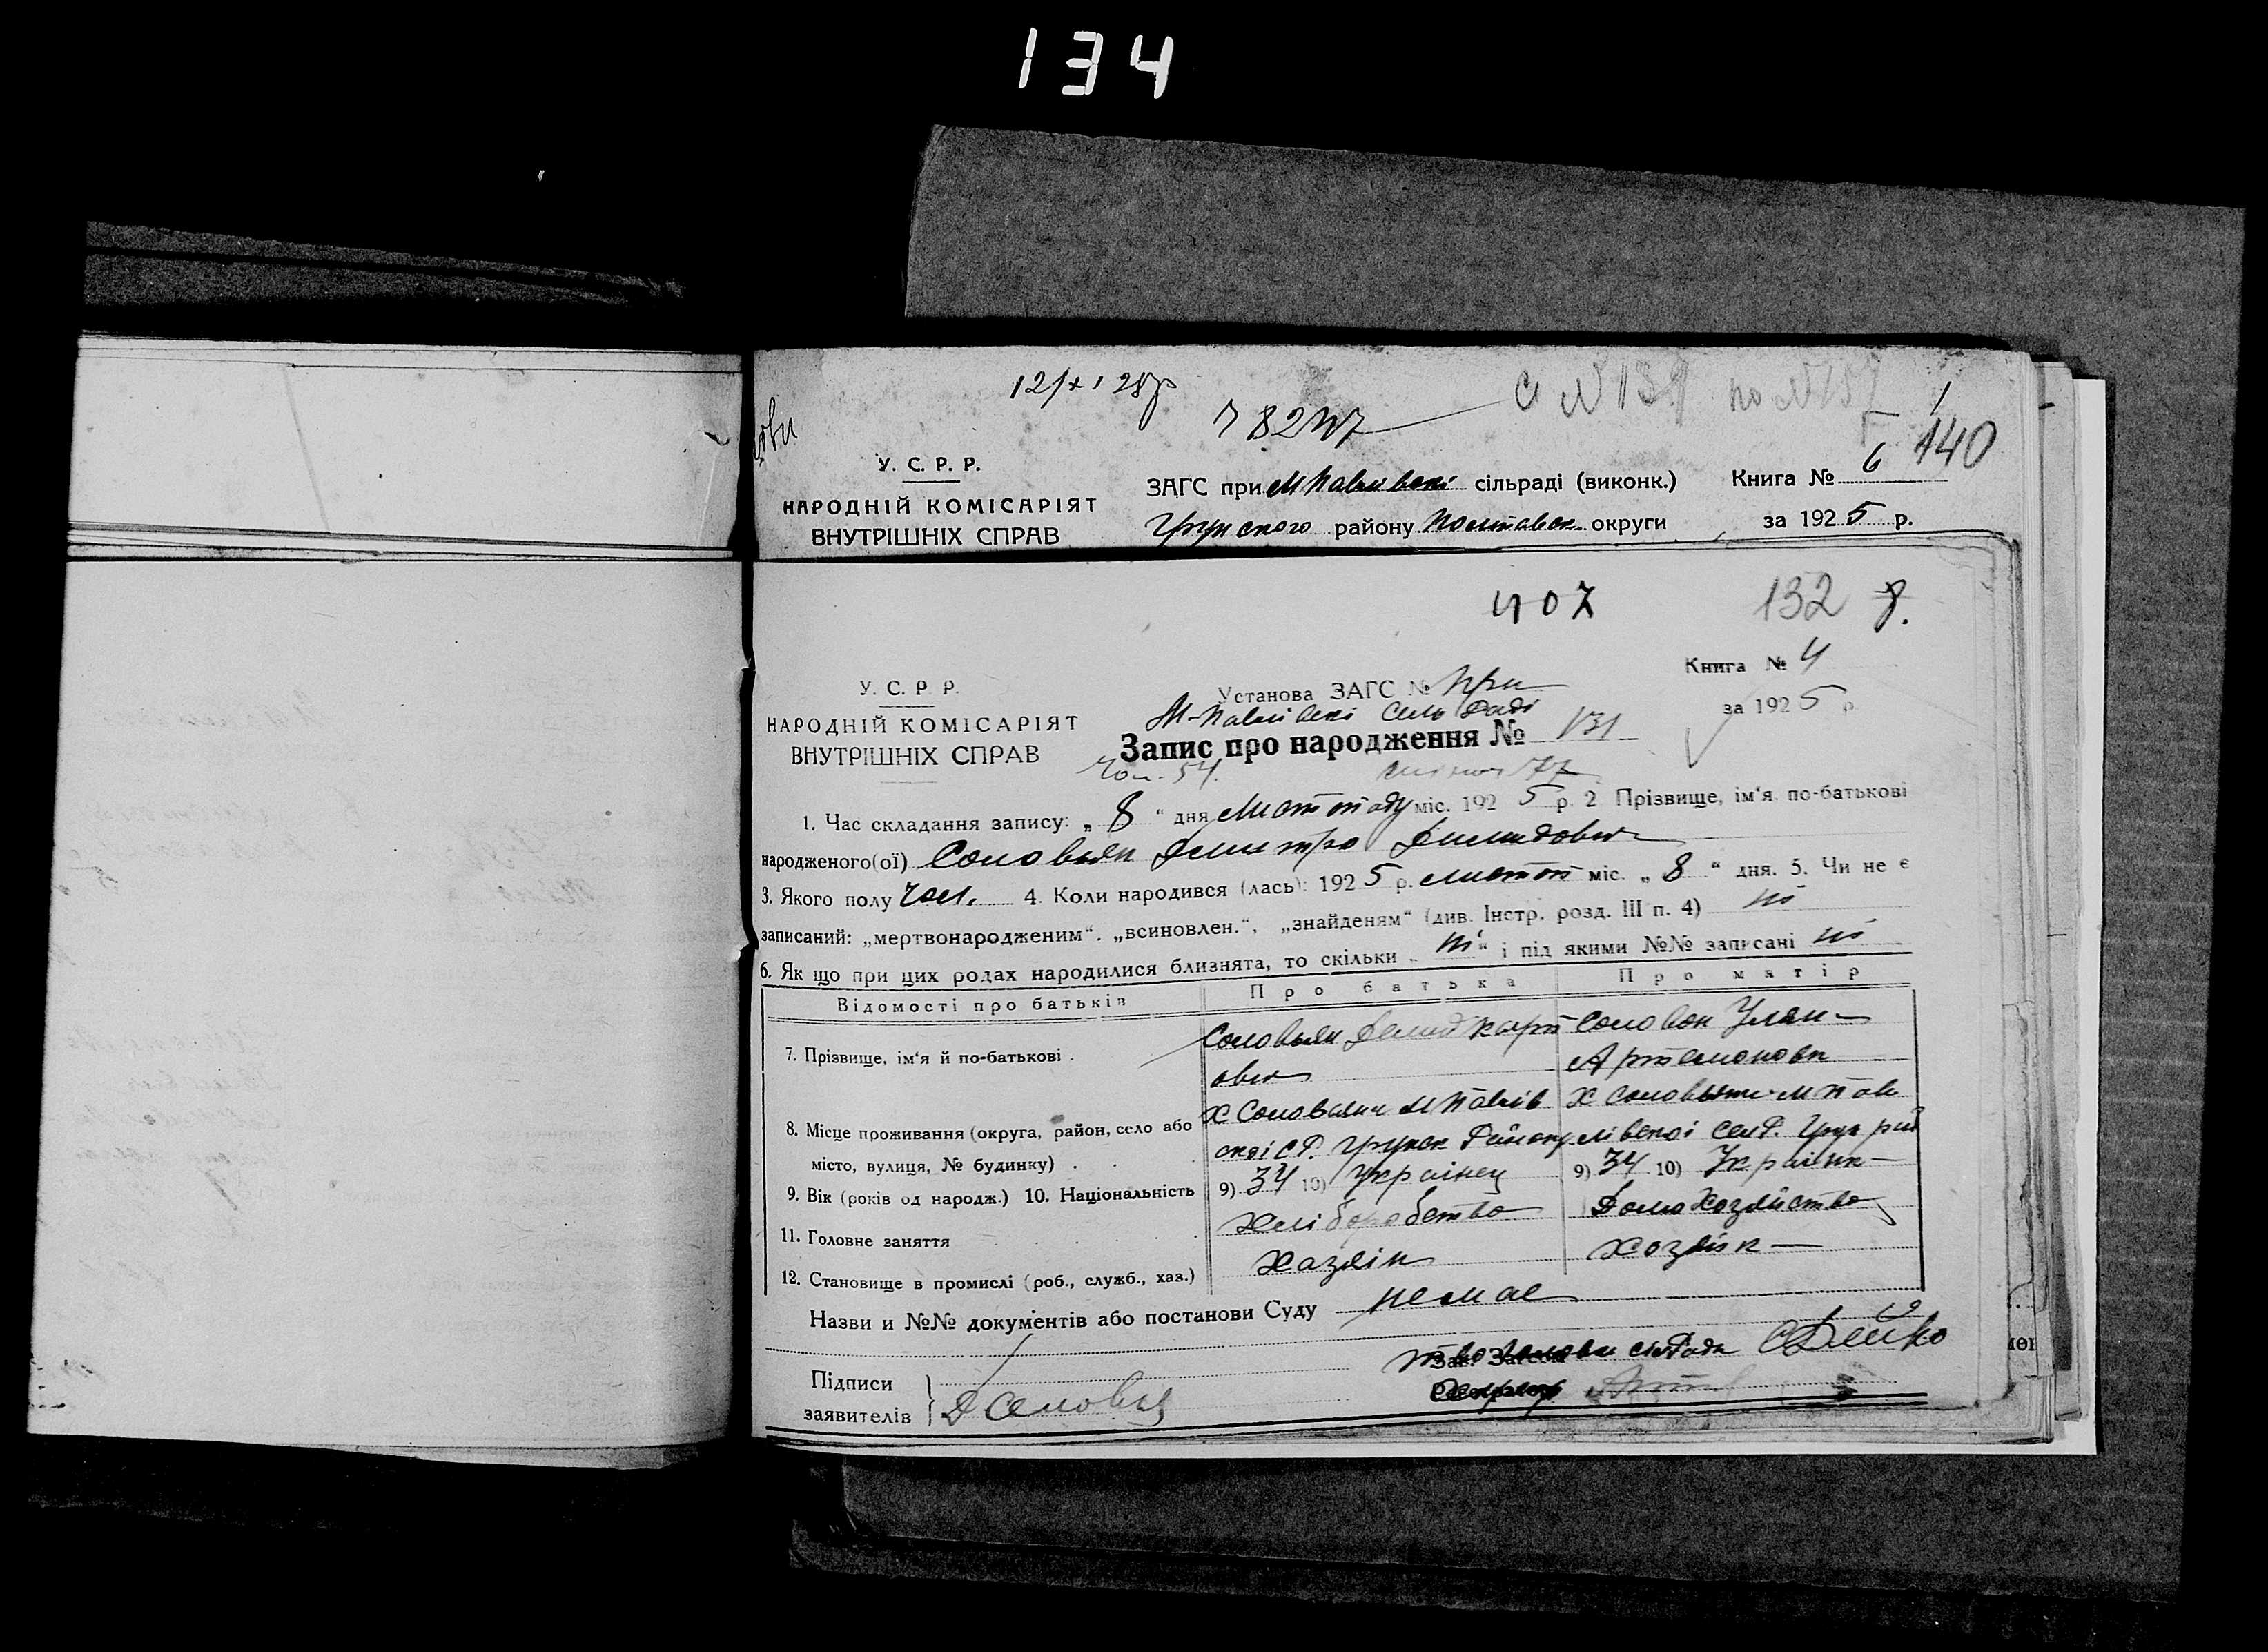 134
У. С. Р. Р.
НАРОДНІЙ КОМІСАРІЯТ
ВНУТРІШНІХ СПРАВ
ЗАГС при М Павлівскі сільраді (виконк.)
Грунского району Полтавск округи
Книга № 6 140
за 1925 р.
407 132
Книга № 4
за 1925 р.
У. С. Р. Р.
НАРОДНІЙ КОМІСАРІЯТ
ВНУТРІШНІХ СПРАВ
Установа ЗАГС № при
М-Павлівскі Сель Раді
Запис про народження № 131
1. Час складання запису: „ 8 “ дня Листопаду міс. 1925 р. 2 Прізвище, ім'я, по-батькові
народженого(ої) Соловьян Дмитро Димидович
3. Якого полу Чол. 4. Коли народився (лась): 1925 р. листоп міс. „ 8 “ дня. 5. Чи не є
записаний: „мертвонародженим“. „всиновлен.“, „знайденям“ (див. Інстр. розд. III п. 4) ні
6. Як що при цих родах народилися близнята, то скільки „ ні “ і під якими №№ записані ні
Відомості про батьків Про батька Про матір
7. Прізвище, ім'я й по-батькові .
Соловьян Демид Карп
ович
Соловян Улян
Артемоновн
8. Місце проживання (округа, район, село або
місто, вулиця, № будинку) .
Х Соловьяни М Павлів
скої С Р. Грунск Району
Х Соловьяни М Пав
лівскої селР. Грун рай
9. Вік (років од народж.) 10. Національність 9) 34 10) Українец 9) 34 10) Українк
11. Головне заняття Хліборобство Домохозяйство
12. Становище в промислі (роб., служб., хаз.) Хазяін Хозяйк
Назви и №№ документів або постанови Суду немає
Голови сільРади
Секретар
Підписи
заявителів Д Соловья